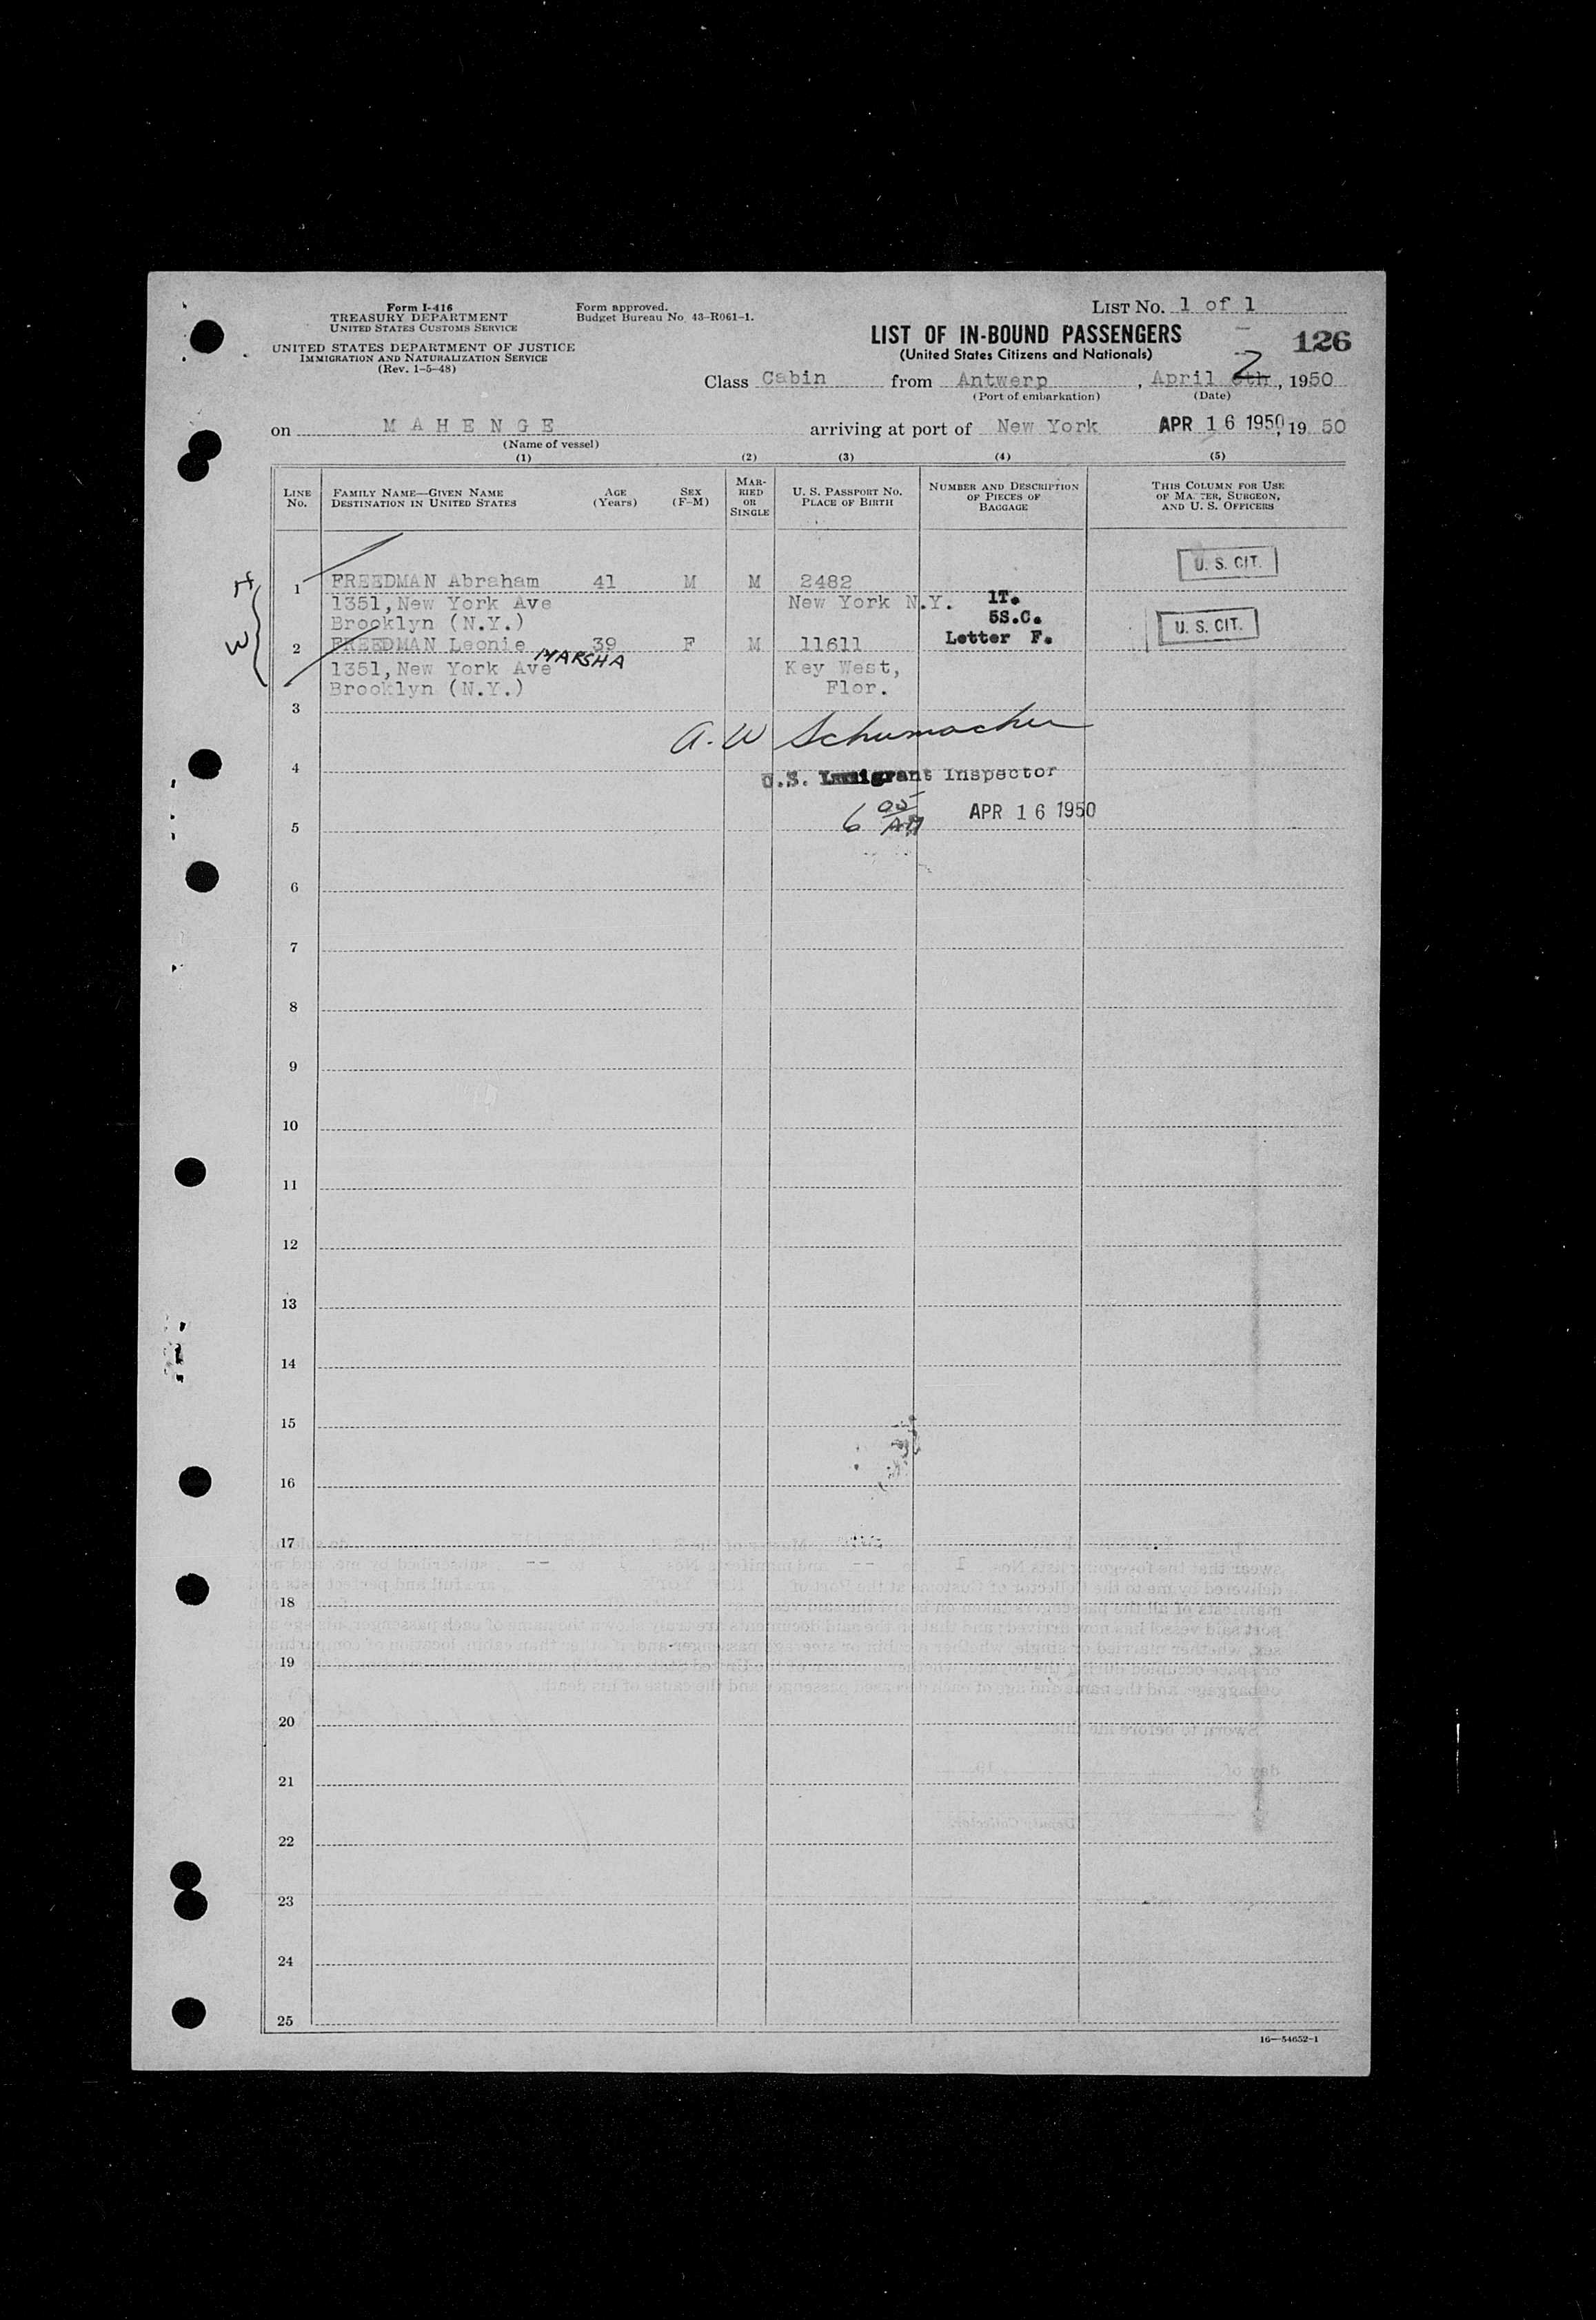 Form I-416
TREASURY DEPARTMENT
UNITED STATES CUSTOMS SERVICE
UNITED STATES DEPARTMENT OF JUSTICE
IMMIGRATION AND NATURALIZATION SERVICE
(Rev. 1-5-48)
Form approved.
Budget Bureau No. 43-R061-1.
LIST NO. 1 of 1
LIST OF IN-BOUND PASSENGERS
(United States Citizens and Nationals)
126
Class Cabin from Antwerp, April 2, 1950
(Port of embarkation) (Date)
on MAHENGE arriving at port of New York APR 16 1950, 19 50
(Name of vessel)
(1) (2) (3) (4) (5)
LINE No.
FAMILY NAME—GIVEN NAME
DESTINATION IN UNITED STATES
AGE
(Years)
SEX
(F-M)
MARRIED OR SINGLE
U. S. PASSPORT NO.
PLACE OF BIRTH
NUMBER AND DESCRIPTION
OF PIECES OF
BAGGAGE
THIS COLUMN FOR USE
OF MASTER, SURGEON,
AND U. S. OFFICERS
H
W
1 FREEDMAN Abraham 41 M M 2482 U. S. CIT.
1351, New York Ave New York N.Y. 1T.
Brooklyn (N.Y.) 5S.C.
2 FREEDMAN Leonie 39 F M 11611 Letter F. U. S. CIT.
MARSHA
1351, New York Ave Key West,
Brooklyn (N.Y.) Flor.
3
A. W Schumacher
4
U.S. Immigrant Inspector
6 05 AM APR 16 1950
5
6
7
8
9
10
11
12
13
14
15
16
17
18
19
20
21
22
23
24
25
16—54652-1